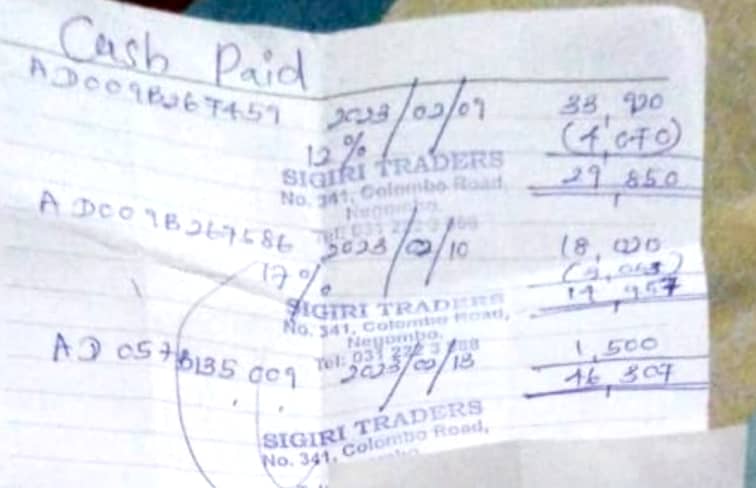 Cash Paid
AD009B267459 2023/02/09 33,920
12% (4,070)
SIGIRI TRADERS
No. 341, Colombo Road, 29,850
Negombo.
AD009B267586 2023/02/10 18,020
17% (3,063)
SIGIRI TRADERS 14,957
No. 341, Colombo Road,
Negombo.
Tel: 031 1,500
AD057B135009 2023/02/13 46,307
SIGIRI TRADERS
No. 341, Colombo Road,